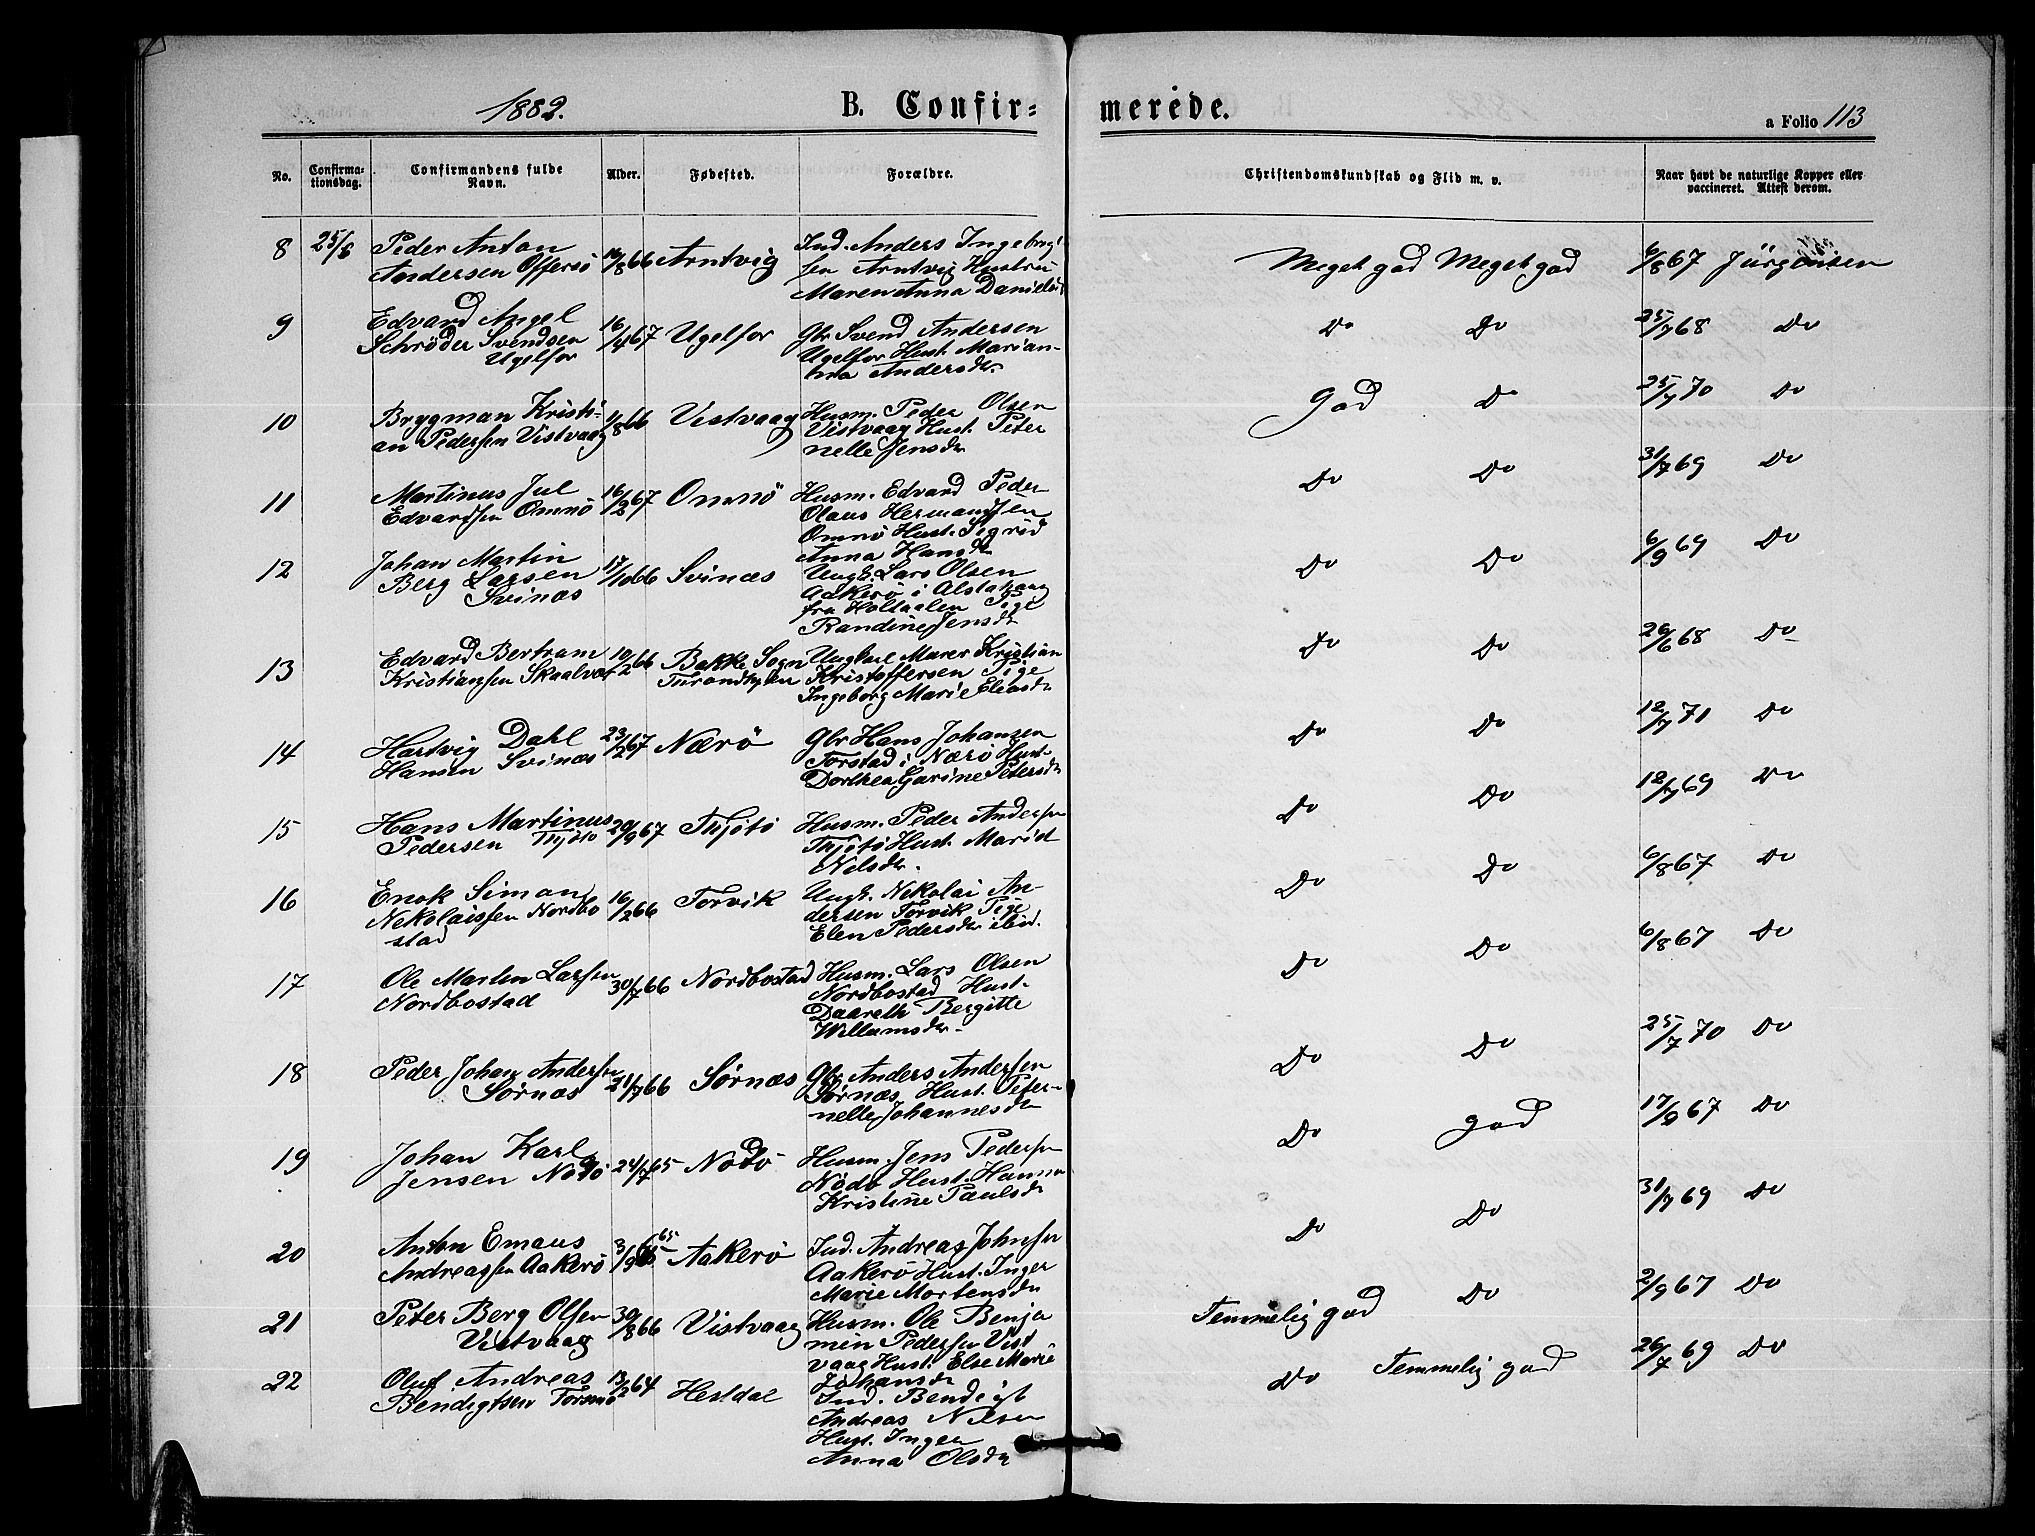 1882.
B. Confir=
merede.
a Folio 113
No.
Confirma-
tionsdag.
Confirmandens fulde
Navn.
Alder.
Fødested.
Forældre.
Christendomskundskab og Flid m. v.
Naar havt de naturlige Kopper eller
vaccineret. Attest derom.
8 25/6 Peder Anton
Andersen Offersö
10/8 66 Arntvig
Ind. Anders Ingebrigt
sen Arntvig Hustru
Maren Anna Danielsd
Meget god Meget god 6/8 67 Jürgensen
9 Edvard Angel
Schrøder Svendsen
Ugelfor
16/4 67 Ugelfor
Gbr Svend Andersen
Ugelfor Hust. Marian-
na Andersdr.
Do Do 25/7 68 Do
10 Brygman Kristi-
an Pedersen Vistvaag
1/8 66 Vistvaag
Husm. Peder Olsen
Vistvaag Hust. Peter
nelle Jensdr
God Do 25/7 70 Do
11 Martinus Jul
Edvardsen Omnö
16/2 67 Omnö
Husm. Edvard Peder
Olaus Hermandsen
Omnö Hust. Sigrid
Anna Hansdr
Do Do 31/7 69 Do
12 Johan Martin
Berg Larsen
Svinæs
17/10 66 Svinæs
Ungk. Lars Olsen
Aakerö i Alstahaug
fra Holtaalen Pige
Randine Jensdr
Do Do 6/9 69 Do
13 Edvard Bertram
Kristiansen Skaalvær
10/2 66 Bakke Sogn
Throndhjem
Ungkarl Murer Kristian
Kristoffersen Pige
Ingeborg Marie Eliasdr
Do Do 26/6 68 Do
14 Hartvig Dahl
Hansen Svinæs
23/2 67 Nærö
Gbr Hans Johansen
Torstad i Nærö Hust.
Dorthea Garine Petersdr
Do Do 12/7 71 Do
15 Hans Martinus
Pedersen Thjötö
29/9 67 Thjötö
Husm. Peder Andersen
Thjötö Hust. Marit
Nilsdr.
Do Do 12/7 69 Do
16 Enok Simon
Nekolaissen Nordbo
stad
16/2 66 Forvik
Ungk. Nekolai An-
dersen Forvik Pige
Elen Pedersdr ibid.
Do Do 6/8 67 Do
17 Ole Martin Larsen
Nordbostad
30/7 66 Nordbostad
Husm. Lars Olsen
Nordbostad Hust.
Daareth Bergitte
Willumsdr.
Do Do 6/8 67 Do
18 Peder Johan Andersen
Sørnæs
21/7 66 Sørnæs
Gbr Anders Andersen
Sørnæs Hust. Peter-
nelle Johannesdr
Do Do 25/7 70 Do
19 Johan Karl
Jensen Nodö
24/7 65 Nodö
Husm. Jens Pedersen
Nödö Hust. Hanna
Kristine Paulsdr
Do god 17/9 67 Do
20 Anton Emaus
Andreassen Aakerö
3/9 65 Aakerö
Ind. Andreas Johnsen
Aakerö Hust. Inger
Marie Mortensdr
Do Do 31/7 69 Do
21 Peter Berg Olsen
Vistvaag
30/8 66 Vistvaag
Husm. Ole Benja
min Pedersen Vist
vaag Hust. Else Marie
Johansdr
Temmelig god Do 2/9 67 Do
22 Oluf Andreas
Bendigtsen Forsmo
13/2 64 Hestdal
Ind. Bendigt
Andreas Nilsen
Hust. Inger
Anna Olsdr
Do Temmelig god 26/7 69 Do